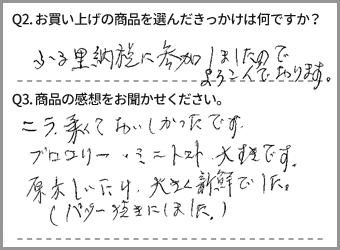 Q2. お買い上げの商品を選んだきっかけは何ですか？
ふる里納税に参加しましたので
よろこんでおります。
Q3. 商品の感想をお聞かせください。
ニラ、柔くておいしかったです。
ブロコリー・ミニトマト 大すきです。
原木しいたけ、大きく新鮮でした。
(バター焼きにしました。)